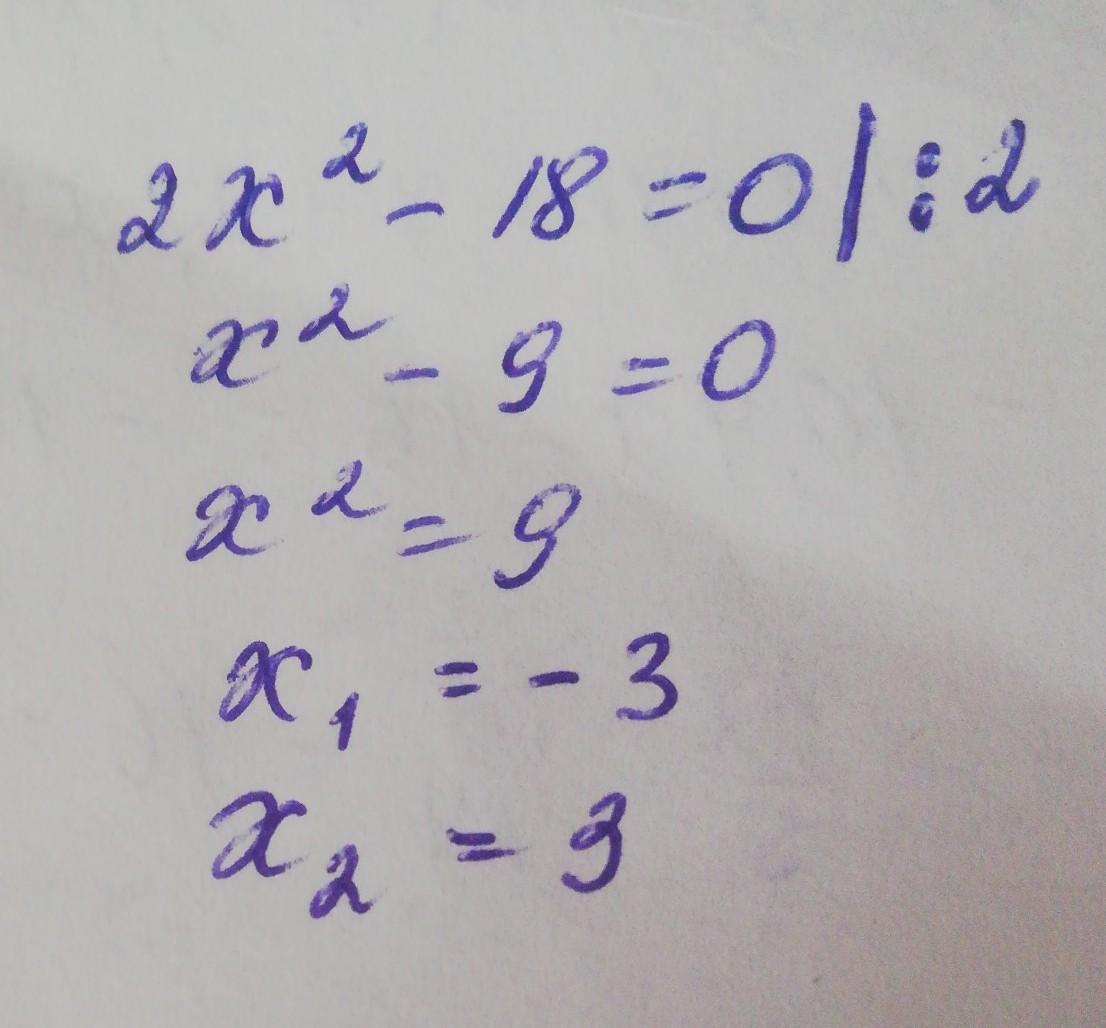 2x² - 18 = 0 | : 2
x² - 9 = 0
x² = 9
x₁ = - 3
x₂ = 3